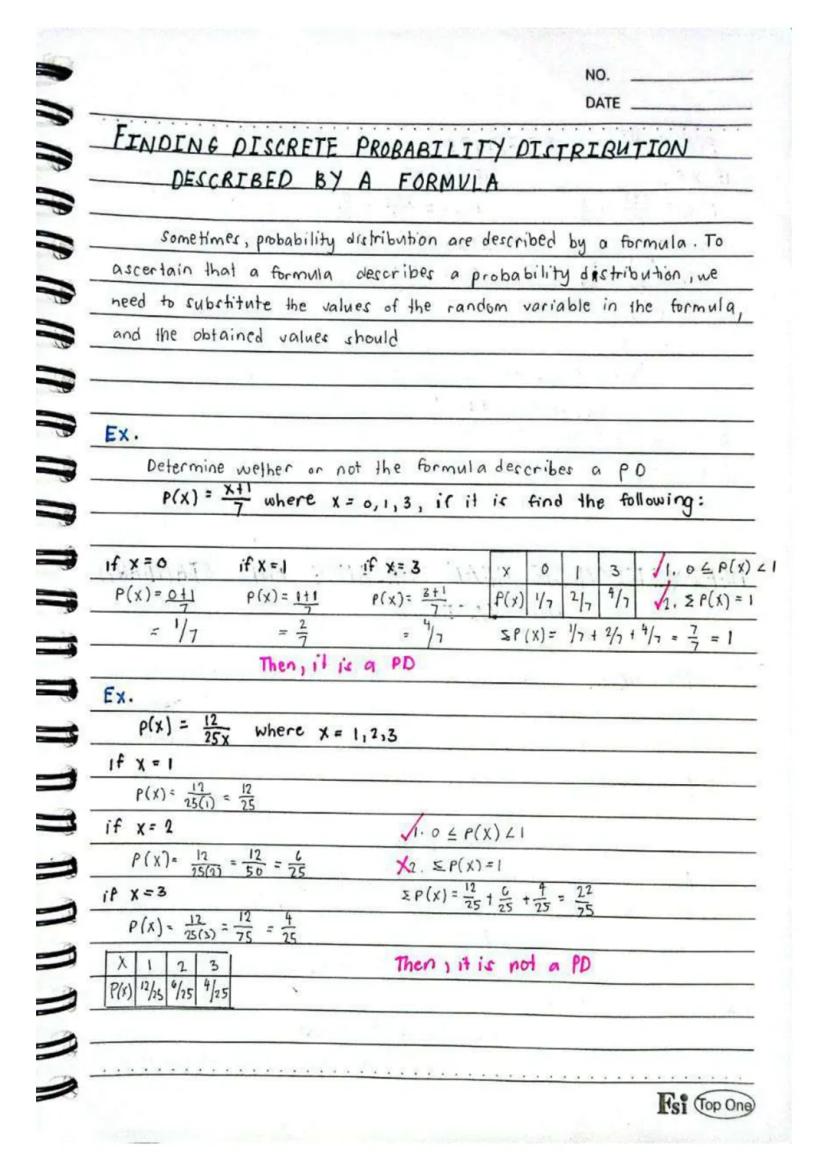 NO.
DATE
FINDING DISCRETE PROBABILITY DISTRIBUTION
DESCRIBED BY A FORMULA
Sometimes, probability distribution are described by a formula. To
ascertain that a formula describes a probability distribution, we
need to substitute the values of the random variable in the formula,
and the obtained values should
Ex.
Determine wether or not the formula describes a PD
P(X) = x+1/7 where x = 0,1,3, if it is find the following:
if x=0 if x=1 if x=3
P(X) = 0+1/7 P(X) = 1+1/7 P(X) = 3+1/7
= 1/7 = 2/7 = 4/7
X 0 1 3
P(X) 1/7 2/7 4/7
✓1. 0 ≤ P(X) < 1
✓2. ΣP(X) = 1
ΣP(X) = 1/7 + 2/7 + 4/7 = 7/7 = 1
Then, it is a PD
Ex.
P(X) = 12/25X where X = 1,2,3
if X = 1
P(X) = 12/25(1) = 12/25
if X = 2
P(X) = 12/25(2) = 12/50 = 6/25
if X = 3
P(X) = 12/25(3) = 12/75 = 4/25
X 1 2 3
P(X) 12/25 6/25 4/25
✓1. 0 ≤ P(X) < 1
X2. ΣP(X) = 1
ΣP(X) = 12/25 + 6/25 + 4/25 = 22/25
Then, it is not a PD
Fsi Top One